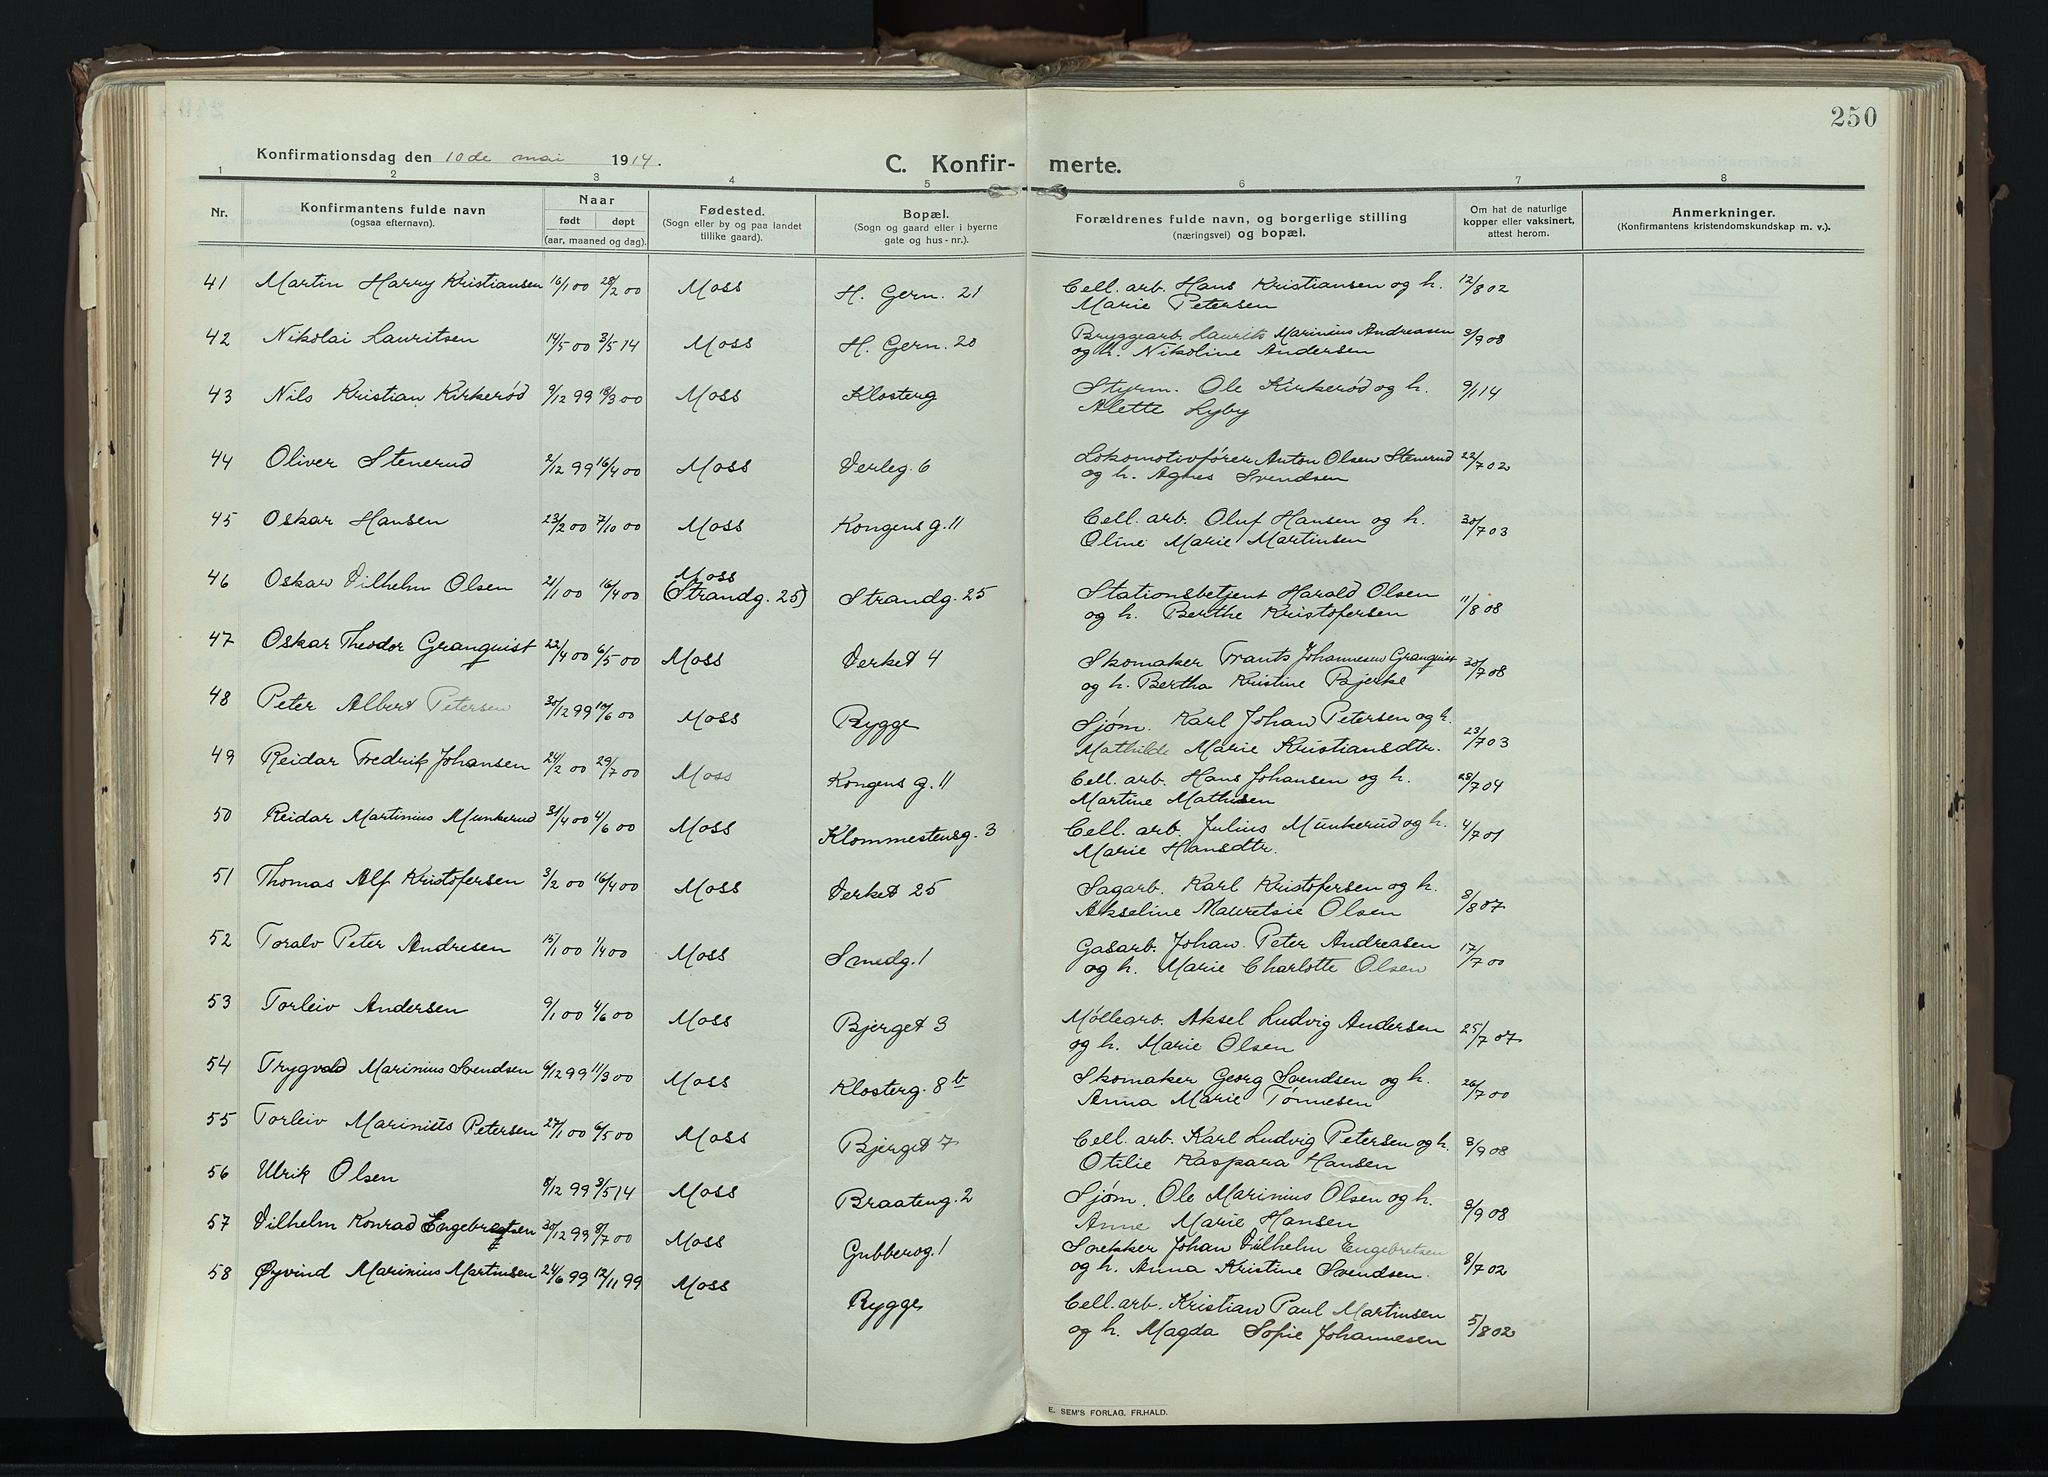 250
Konfirmationsdag den 10de mai 1914.
C. Konfir- merte.
1 2 3 4 5 6 7 8
Nr.
Konfirmantens fulde navn
(ogsaa efternavn).
Naar
født døpt
(aar, maaned og dag).
Fødested.
(Sogn eller by og paa landet
tillike gaard).
Bopæl.
(Sogn og gaard eller i byerne
gate og hus-nr.).
Forældrenes fulde navn, og borgerlige stilling
(næringsvei) og bopæl.
Om hat de naturlige
kopper eller vaksinert,
attest herom.
Anmerkninger.
(Konfirmantens kristendomskundskap m. v.).
41 Martin Harry Kristiansen 16/1 00 28/2 00 Moss H. Gern. 21 Cell. arb. Hans Kristiansen og h. 12/8 02
Marie Petersen
42 Nikolai Lauritsen 14/5 00 3/5 14 Moss H. Gern. 20 Bryggearb. Laurits Marinius Andreasen 3/9 08
og h. Nikoline Andersen
43 Nils Kristian Kirkerød 9/12 99 18/3 00 Moss Klosterg Styrm. Ole Kirkerød og h. 9/1 14
Alette Lyby
44 Oliver Stenerud 2/12 99 16/4 00 Moss Verleg. 6 Lokomotivfører Anton Olsen Stenerud 22/7 02
og h. Agnes Svendsen
45 Oskar Hansen 23/2 00 7/10 00 Moss Kongens g. 11 Cell. arb. Oluf Hansen og h. 30/7 03
Oline Marie Martinsen
46 Oskar Vilhelm Olsen 21/1 00 16/4 00 Moss
(Strandg. 25) Strandg. 25 Stationsbetjent Harald Olsen 11/8 08
og h. Berthe Kristofersen
47 Oskar Theodor Granquist 22/4 00 6/5 00 Moss Verket 4 Skomaker Frants Johannesen Granquist 30/7 08
og h. Bertha Kristine Bjerke
48 Peter Albert Petersen 30/12 99 10/6 00 Moss Rygge Sjøm. Karl Johan Petersen og h. 23/7 03
Mathilde Marie Kristiansdtr.
49 Reidar Fredrik Johansen 24/2 00 29/7 00 Moss Kongens g. 11 Cell. arb. Hans Johansen og h. 28/7 04
Martine Mathisen
50 Reidar Martinius Munkerud 31/4 00 4/6 00 Moss Klommestensg. 3 Cell. arb. Julius Munkerud og h. 4/7 01
Marie Hansdtr.
51 Thomas Alf Kristofersen 3/2 00 16/4 00 Moss Verket 25 Sagarb. Karl Kristofersen og h. 3/8 07
Akseline Mauretsie Olsen
52 Toralv Peter Andresen 15/1 00 1/4 00 Moss Smedg. 1 Gasarb. Johan Peter Andreasen 17/7 00
og h. Marie Charlotte Olsen
53 Torleiv Andersen 9/1 00 4/6 00 Moss Bjerget 3 Møllearb. Aksel Ludvig Andersen 25/7 07
og h. Marie Olsen
54 Trygvald Marinius Svendsen 6/12 99 11/3 00 Moss Klosterg. 8b Skomaker Georg Svendsen og h. 26/7 00
Anna Marie Tønnesen
55 Torleiv Marinius Petersen 27/1 00 6/5 00 Moss Bjerget 7 Cell. arb. Karl Ludvig Petersen og h. 3/9 08
Otilie Kaspara Hansen
56 Ulrik Olsen 8/12 99 3/5 14 Moss Braateng. 2 Sjøm. Ole Marinius Olsen og h. 3/9 08
Anne Marie Hansen
57 Vilhelm Konrad Engebretsen 30/12 99 8/7 00 Moss Gubberog 1 Snekker Johan Vilhelm Engebretsen 8/7 02
og h. Anna Kristine Svendsen.
58 Øyvind Marinius Martinsen 24/6 99 12/11 99 Moss Rygge Cell. arb. Kristian Paul Martinsen 5/8 02
og h. Magda Sofie Johannesen
E. SEM'S FORLAG. FR.HALD.